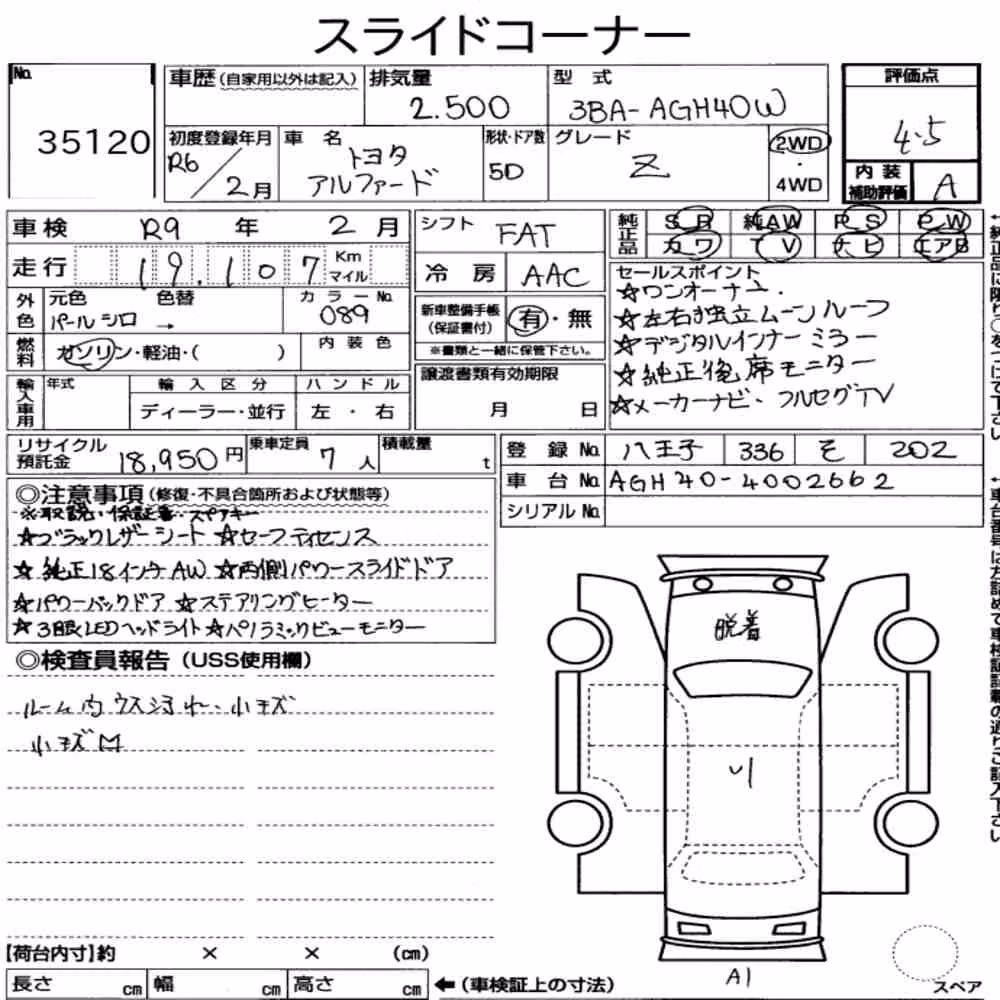 スライドコーナー
No. 35120
車歴(自家用以外は記入)
排気量 2.500
型式 3BA-AGH40W
評価点 4.5
内装補助評価 A
初度登録年月 R6/2月
車名 トヨタ アルファード
形状・ドア数 5D
グレード Z
2WD・4WD
車検 R9年2月
シフト FAT
純正品 SR 純AW PS PW
カワ TV ナビ エアB
走行 19.107 Km マイル
冷房 AAC
外色 元色 パールシロ 色替 →
カラーNo. 089
新車整備手帳(保証書付) 有・無
※書類と一緒に保管下さい。
セールスポイント
☆ワンオーナー.
☆左右独立ムーンルーフ
☆デジタルインナーミラー
☆純正後席モニター
☆メーカーナビ・フルセグTV
燃料 ガソリン・軽油・( )
内装色
輸入車用 年式 輸入区分 ハンドル
ディーラー・並行 左・右
譲渡書類有効期限
月 日
リサイクル預託金 18,950円
乗車定員 7人
積載量 t
登録No. 八王子 336 そ 202
車台No. AGH40-4002662
シリアルNo.
◎注意事項(修復・不具合箇所および状態等)
※取説・保証書・スペアキー
☆ブラックレザーシート ☆セーフティセンス
☆純正18インチAW ☆両側パワースライドドア
☆パワーバックドア ☆ステアリングヒーター
☆3眼LEDヘッドライト ☆パノラミックビューモニター
◎検査員報告(USS使用欄)
ルーム内ウス汚れ・小キズ
小キズ凹
脱着
A1
【荷台内寸】約 × × (cm)
長さ cm 幅 cm 高さ cm ←(車検証上の寸法)
スペア